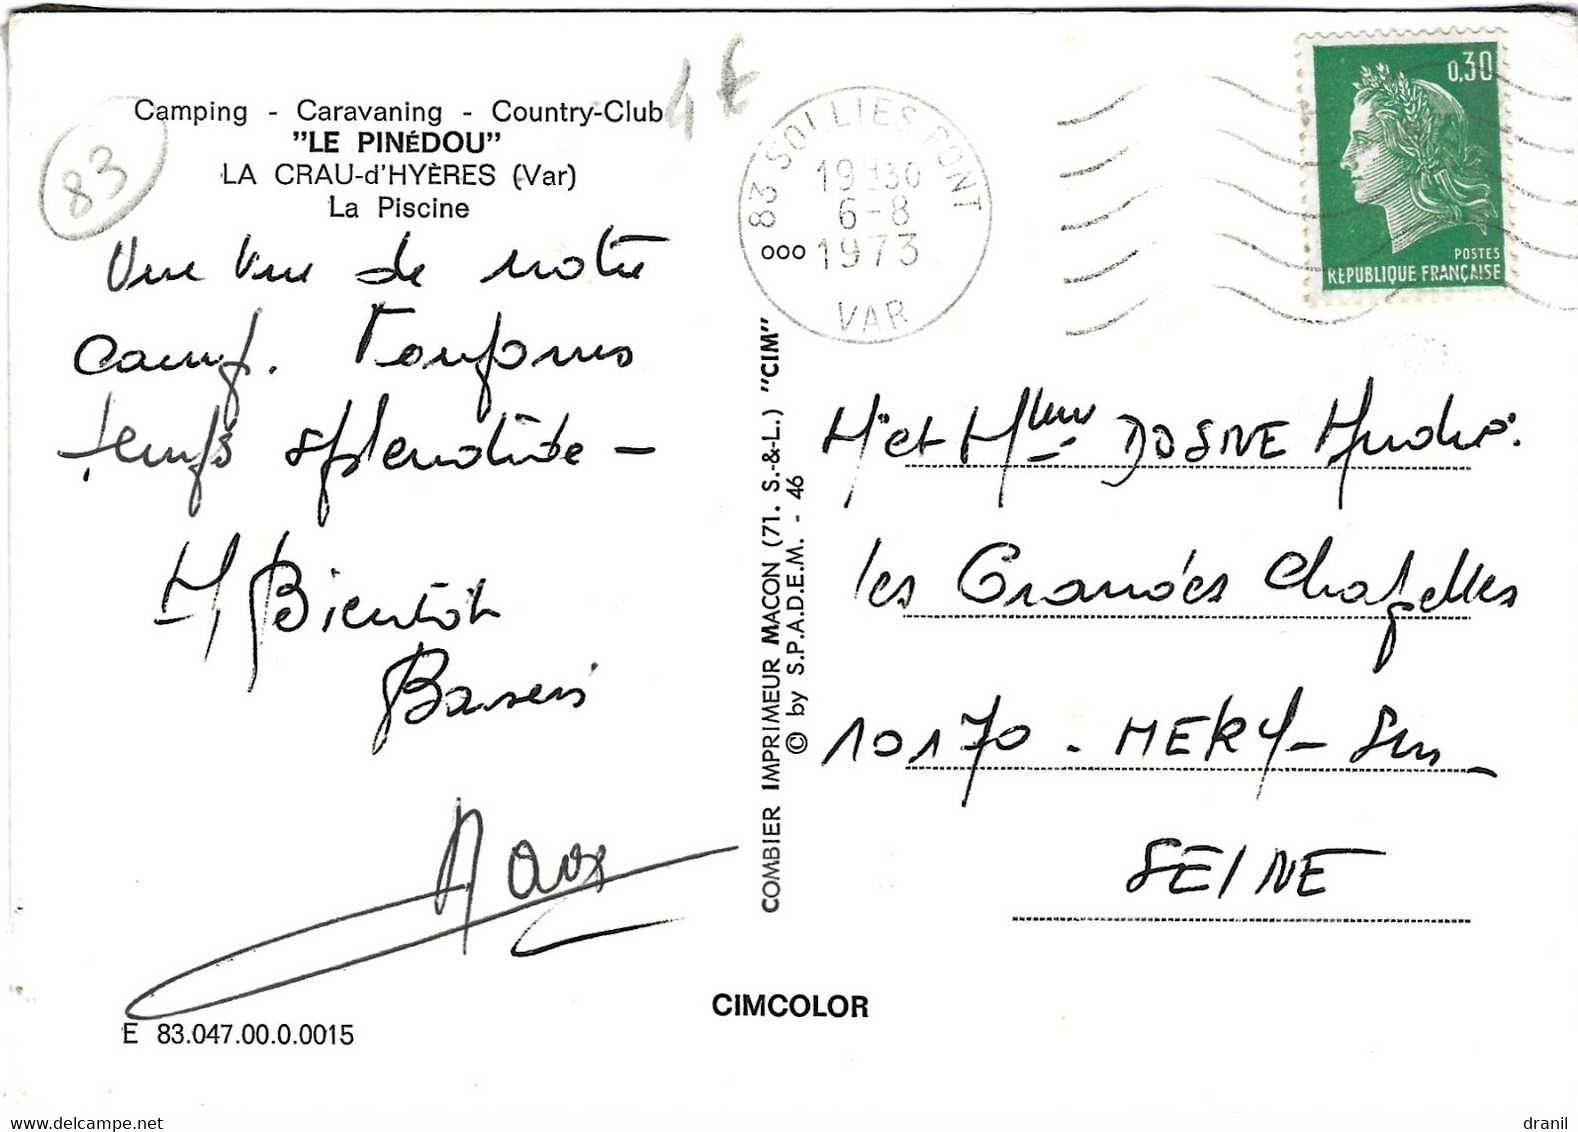 Camping - Caravaning - Country-Club
"LE PINÉDOU"
LA CRAU-d'HYÈRES (Var)
La Piscine
83
4 €
Une vue de notre
camp. Toujours
temps splendide -
A Bientôt
Baisers
E 83.047.00.0.0015
COMBIER IMPRIMEUR MACON (71. S.-&-L.) "CIM"
© by S.P.A.D.E.M. - 46
CIMCOLOR
83 SOLLIES PONT
19H30
6-8
1973
VAR
0,30
POSTES
REPUBLIQUE FRANÇAISE
Mr et Mme DOSNE André.
les Grandes Chapelles
10170 - MERY - sur -
SEINE
dranil